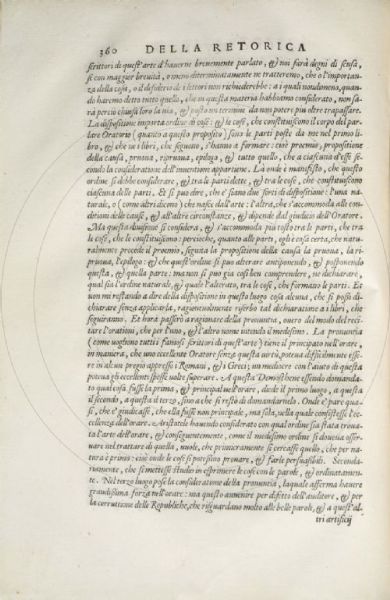 360 DELLA RETORICA
scrittori di quest'arte d'hauerne breuemente parlato, & noi farà degni di scusa,
se con maggior breuità, o meno determinatamente ne tratteremo, che o l'importan-
za della cosa, o il desiderio de i lettori non richiederebbe: a i quali nondimeno, quan-
do haremo detto tutto quello, che in questa materia habbiamo considerato, non sa-
rà perciò chiusa loro la via, & tosto
La dispositione importa ordine di cose: & le cose, che constituiscono il corpo del par-
lare Oratorio (quanto a questo proposito) sono le parti poste da me nel primo li-
bro, & che ne i libri, che seguono, s'hanno a formare: cioè proemio, propositione
della causa, pruoua, ripruoua, epilogo, & tutto quello, che a ciascuna d'esse se-
condo la consideratione dell'inuentione appartiene. Là onde è manifesto, che questo
ordine si debbe considerare, & tra le parti dette, & tra le cose, che constituiscono
ciascuna delle parti. Et si può dire, che ci siano due sorti di dispositione: l'una na-
turale, o (come altri dicono) che nasce dall'arte: l'altra, che s'accommoda alle con-
ditioni delle cause, & all'altre circunstanze, & dipende dal giudicio dell'Oratore.
Ma questa diuisione si considera, & s'accommoda più tosto tra le parti, che tra
le cose, che le constituiscono: percioche, quanto alle parti, egli è cosa certa, che natu-
ralmente procede il proemio, seguita la propositione della causa, la pruoua, la ri-
pruoua, l'epilogo: & che quest'ordine si può alterare anteponendo, & posponendo
questa, & quella parte: ma non si può già così ben comprendere, ne dichiarare,
qual sia l'ordine naturale, & quale l'alterato, tra le cose, che formano le parti. Et
non mi restando a dire della dispositione in questo luogo cosa alcuna, che si possa di-
chiarare senza applicarla, ragioneuolmente riserbo tal dichiaratione a i libri, che
seguiranno. Et horà passerò a ragionare della pronuntia, ouero del modo del reci-
tare l'orationi, che per l'uno, & l'altro nome intendo il medesimo. La pronuntia
(come uogliono tutti i famosi scrittori di quest'arte) tiene il principato nell'orare,
in maniera, che uno eccellente Oratore senza questa uirtù, poteua difficilmente esse-
re in alcun pregio appresso i Romani, & i Greci; un mediocre con l'aiuto di questa
poteua gli eccellenti spesse uolte superare. A questa Demosthene essendo domanda-
to qual cosa fusse la prima, & principal nell'orare, diede il primo luogo, a questa
il secondo, a questa il terzo, sino a che si restò di domandarnelo. Onde è pare qua-
si, che e' giudicasse, che ella fusse non principale, ma sola, nella quale consistesse l'ec-
cellenza dell'orare. Aristotele hauendo considerato con qual ordine sia stata troua-
ta l'arte dell'orare, & conseguentemente, come il medesimo ordine si doueua osser-
uare nel trattare di quella, uuole, che primieramente si cercasse quello, che per na-
tura è primo: cioè onde le cose si potessino prouare, & farle persuasibili. Seconda-
riamente, che si mettesse studio in esprimere le cose con le parole, & ordinatamen-
te. Nel terzo luogo pose la consideratione della pronuntia, la quale afferma hauere
grandissima forza nell'orare: ma questo auuenire per difetto dell'auditore, & per
la corruttione delle Republiche, che riguardano molto alle belle parole, & a quest'al-
tri artificij